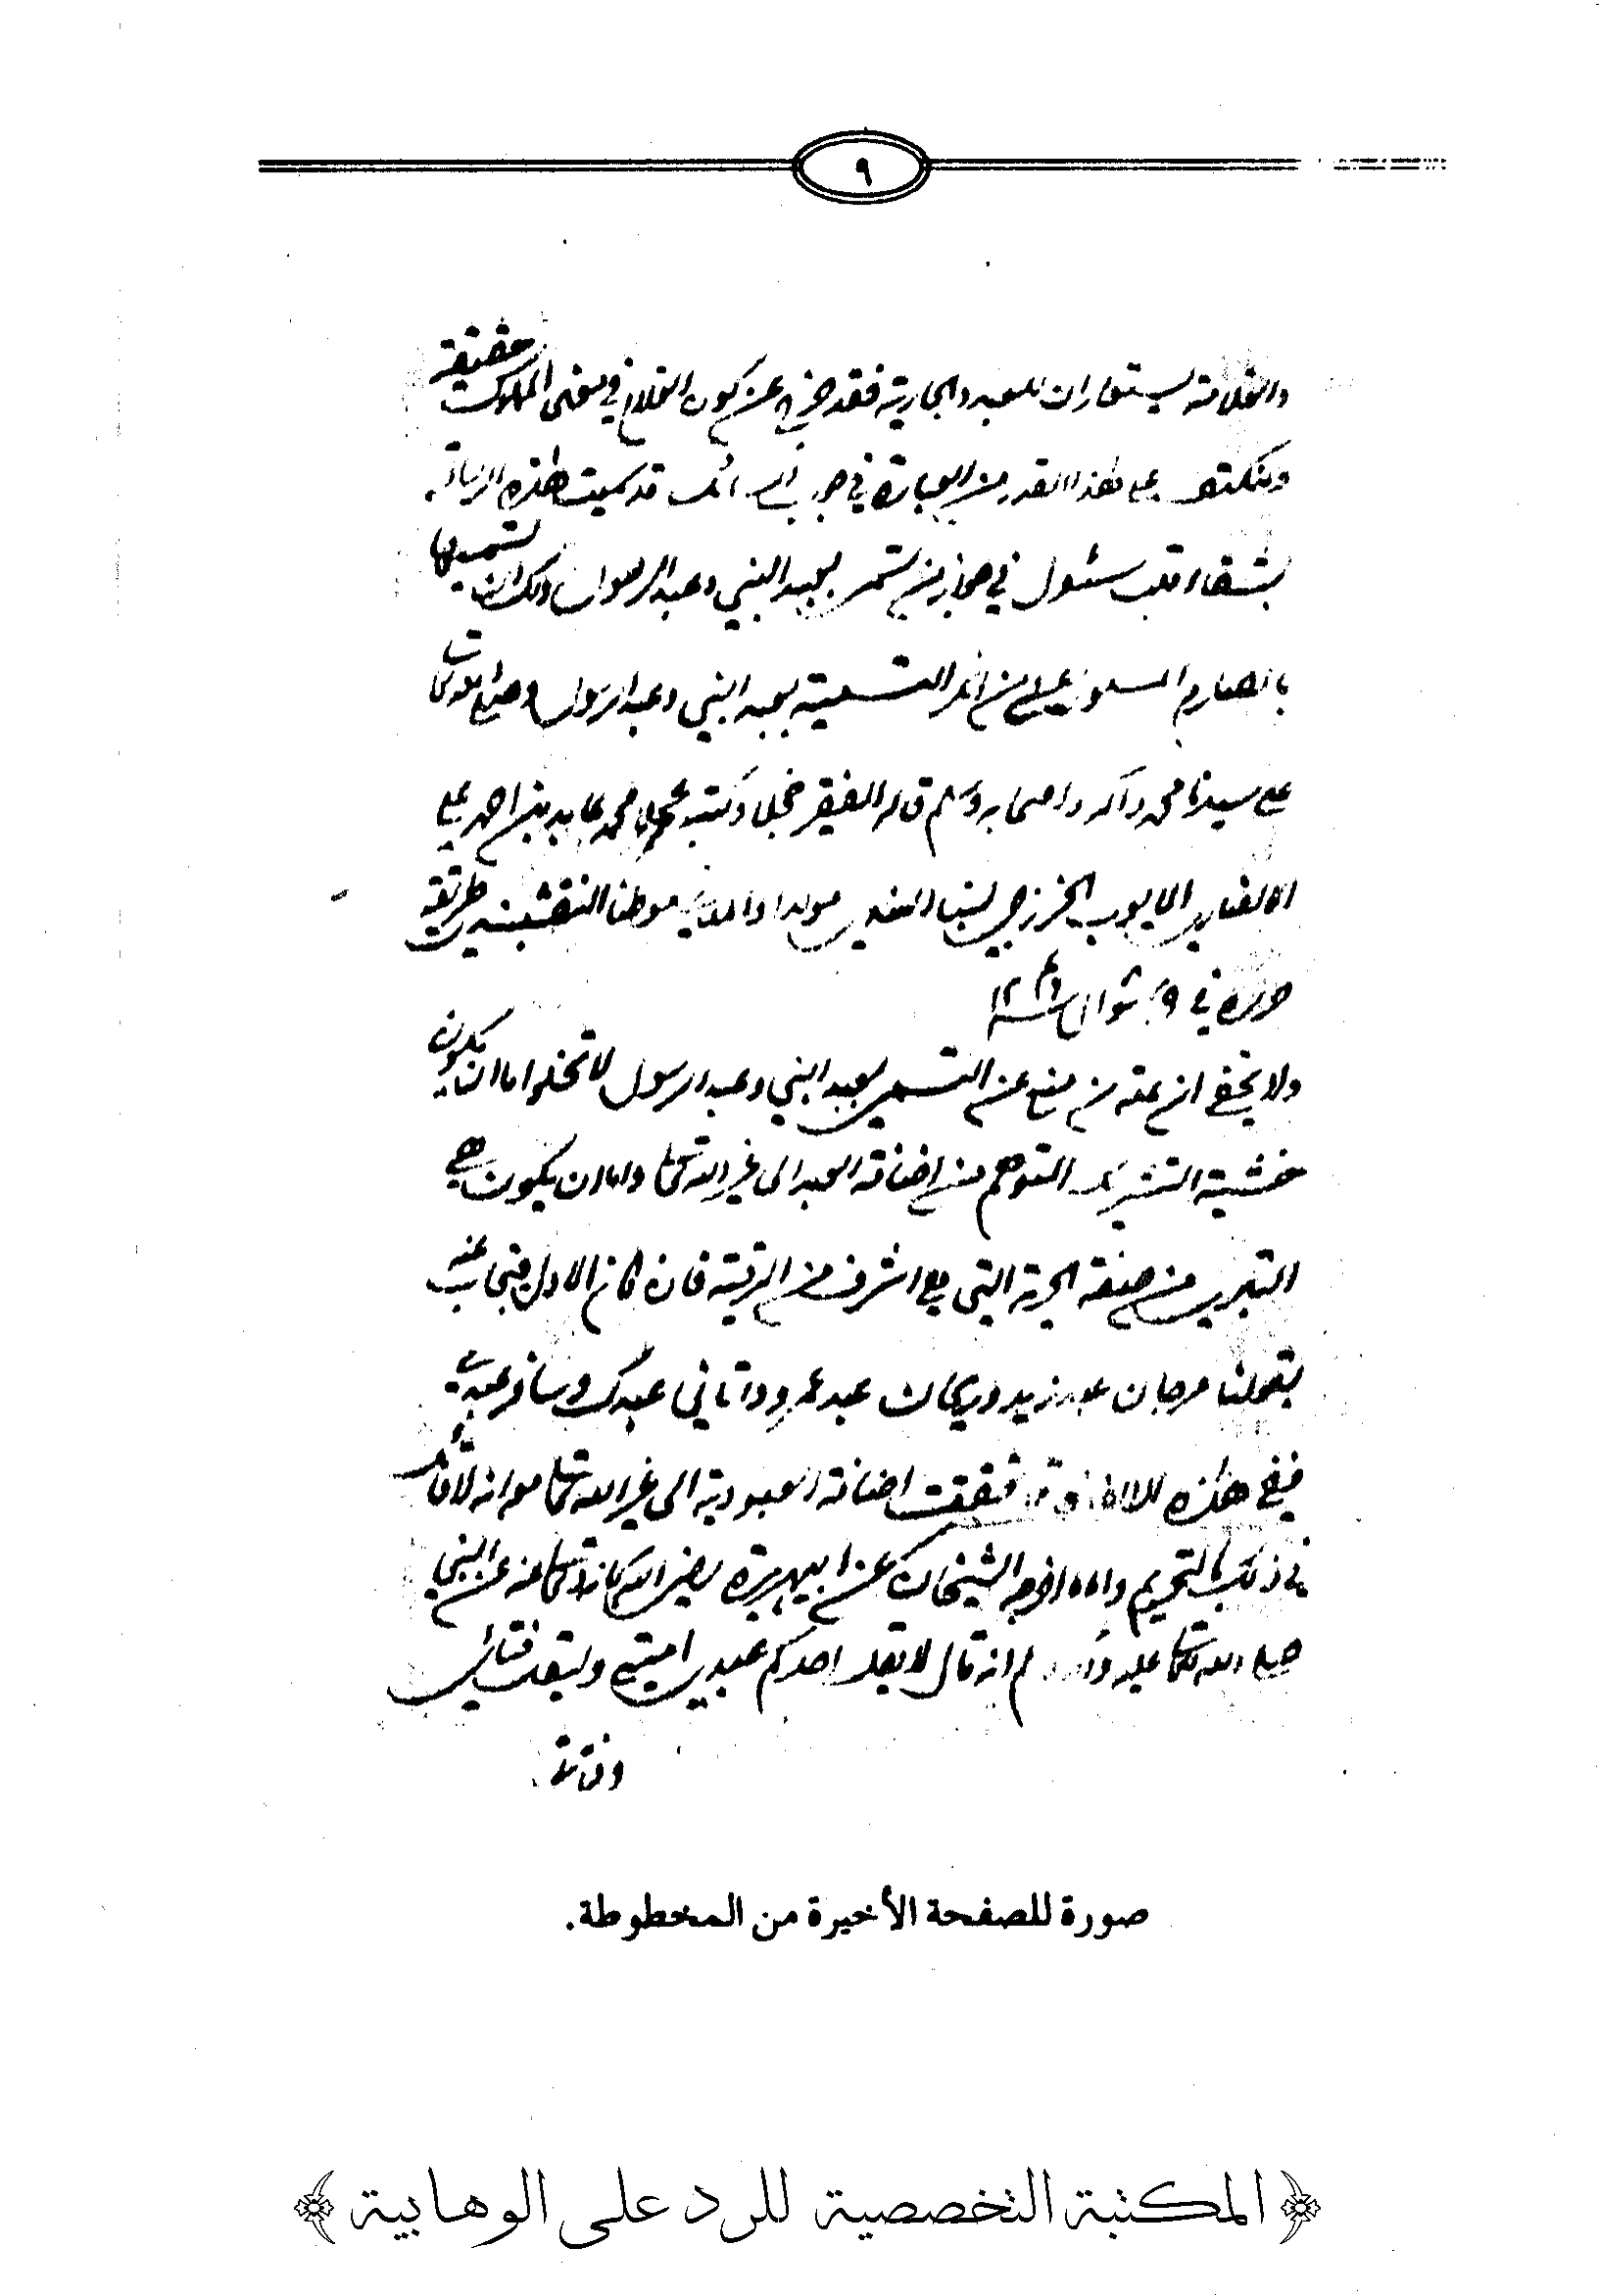 ٩
والغلامة يستعاران للعبد والجارية فقد خرج عن كون الغلام في معنى المملوك حقيقة
ولنكتف على هذا القدر من العبارة في جواب السائل قد سميت هذه الرسالة
بشفاء قلب سئول في جواز من تسمى بعبد النبي وعبد الرسول ولك ان تسميها
بالصارم المسلول على من انكر التسمية بعبد النبي وعبد الرسول وصلى الله تعالى
على سيدنا محمد وآله واصحابه وسلم قاله الفقير خجلا وكتبه عجلا محمد عابد بن احمد علي
الانصاري الايوبي الخزرجي نسبا السندي مولدا والمدني موطنا النقشبندي طريقة
حرره في شوال سنة
ولا يخفى ان علة من منع عن التسمي بعبد النبي وعبد الرسول لا تخلو اما ان يكون
خشية التشريك المتوهم من اضافة العبد الى غير الله تعالى واما ان يكون هي
التبري من صفة الحرية التي هي اشرف من الرقية فان كان الاول فيجاب عنه
بقولنا مرجان عبد زيد وريحان عبد عمرو واتاني عبدك وسافر عبدي
ففي هذه الالفاظ قد تحققت اضافة العبودية الى غير الله تعالى مع انه لا قائل
في ذلك بالتحريم واما ما اخرجه الشيخان عن ابي هريرة رضي الله تعالى عنه عن النبي
صلى الله تعالى عليه وآله وسلم انه قال لا يقل احدكم عبدي امتي وليقل فتاي
وفتاتي
صورة للصفحة الأخيرة من المخطوطة.
﴿ المكتبة التخصصية للرد على الوهابية ﴾